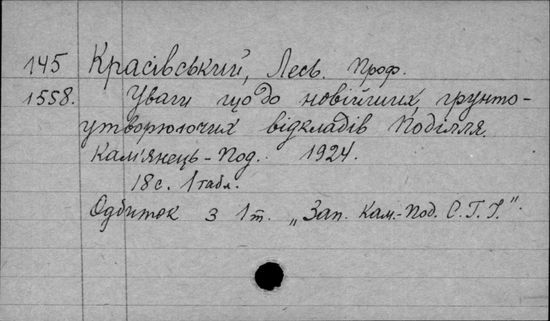 145 Красівський, Лесь. Проф.
1558. Уваги що до новійших, ґрунто-
утворюючих відкладів Поділля.
Кам'янець-Под. 1924.
18 с. 1 табл.
Одбиток з 1 т. „Зап. Кам.-Под. С.Г.І.".